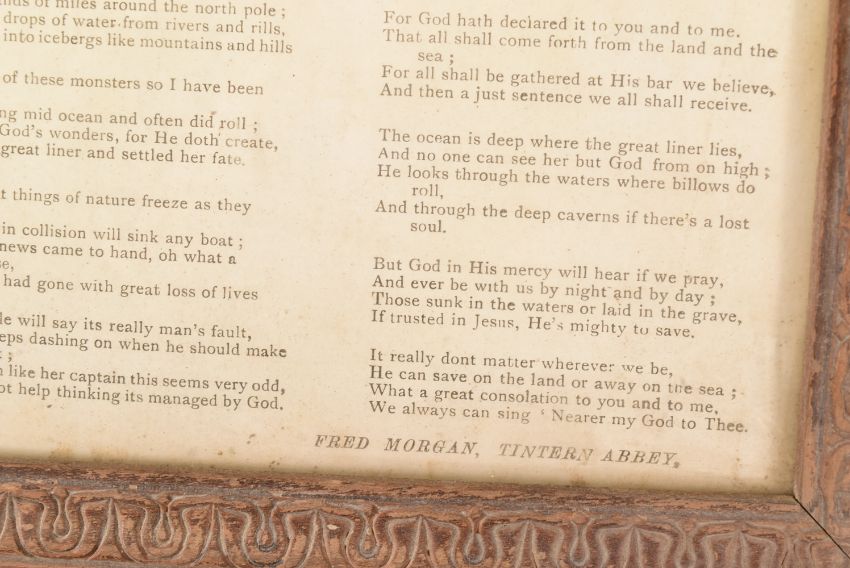 nds of miles around the north pole ;
drops of water from rivers and rills,
into icebergs like mountains and hills
of these monsters so I have been
ng mid ocean and often did roll ;
God's wonders, for He doth create,
great liner and settled her fate.
t things of nature freeze as they
in collision will sink any boat ;
news came to hand, oh what a
se,
had gone with great loss of lives
le will say its really man's fault,
eps dashing on when he should make
;
like her captain this seems very odd,
ot help thinking its managed by God.
For God hath declared it to you and to me.
That all shall come forth from the land and the
sea ;
For all shall be gathered at His bar we believe,
And then a just sentence we all shall receive.
The ocean is deep where the great liner lies,
And no one can see her but God from on high ;
He looks through the waters where billows do
roll,
And through the deep caverns if there's a lost
soul.
But God in His mercy will hear if we pray,
And ever be with us by night and by day ;
Those sunk in the waters or laid in the grave,
If trusted in Jesus, He's mighty to save.
It really dont matter wherever we be,
He can save on the land or away on the sea ;
What a great consolation to you and to me,
We always can sing ‘ Nearer my God to Thee.
FRED MORGAN, TINTERN ABBEY.